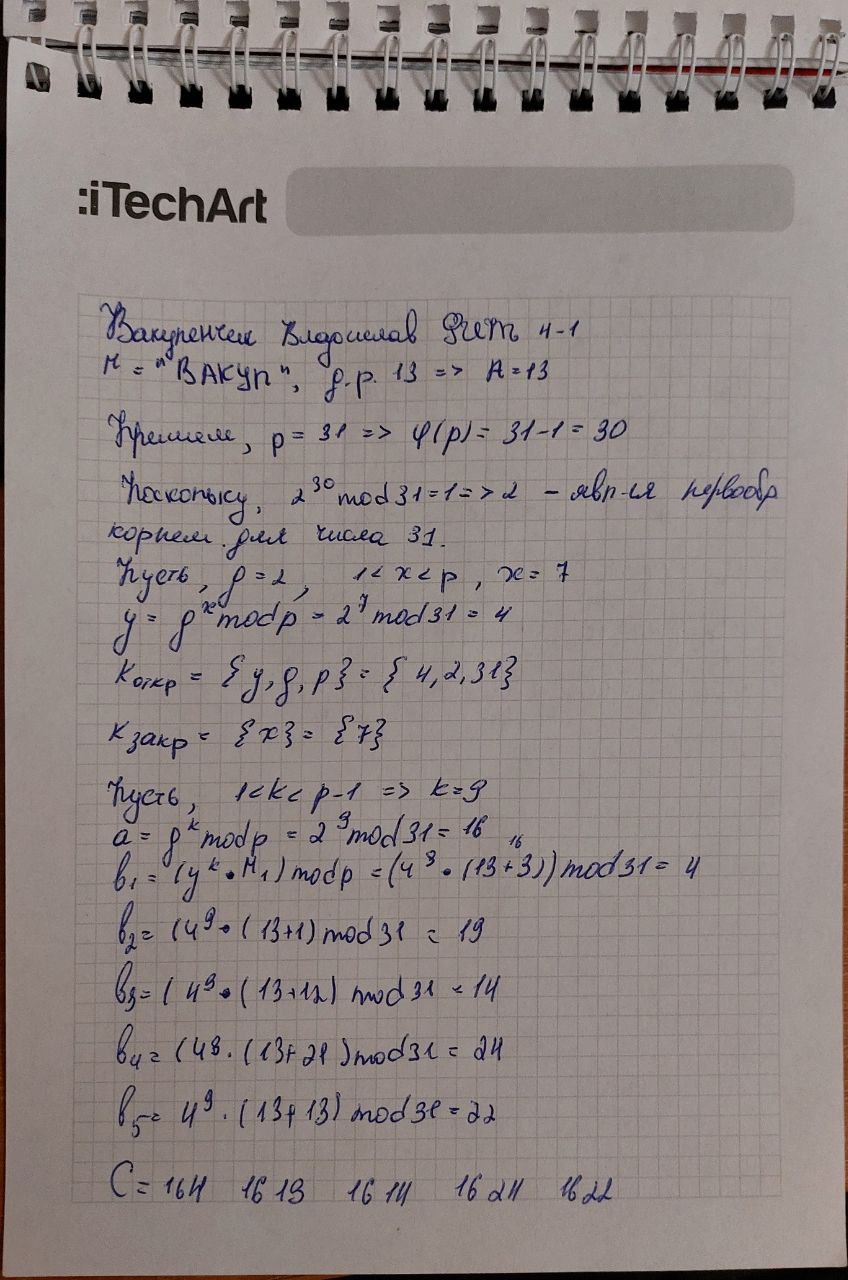 :iTechArt
Вакуленчик Владислав ФИТ 4-1
М = "ВАКУЛ", д.р. 13 => А=13
Примем, p = 31 => φ(p) = 31-1 = 30
Поскольку, 2^30 mod 31 = 1 => 2 - явл-ся первообр
корнем для числа 31.
Пусть, g=2, 1 < x < p, x = 7
y = g^x mod p = 2^7 mod 31 = 4
Kоткр = {y, g, p} = {4, 2, 31}
Kзакр = {x} = {7}
Пусть, 1<k< p-1 => k=9
a = g^k mod p = 2^9 mod 31 = 16
b1 = (y^k · M1) mod p = (4^9 · (13+3)) mod 31 = 4
16
b2 = (4^9 · (13+1) mod 31 = 19
b3 = (4^9 · (13+12) mod 31 = 14
b4 = (4^9 · (13+21) mod 31 = 24
b5 = 4^9 · (13+13) mod 31 = 22
C = 16 4 16 19 16 14 16 24 16 22